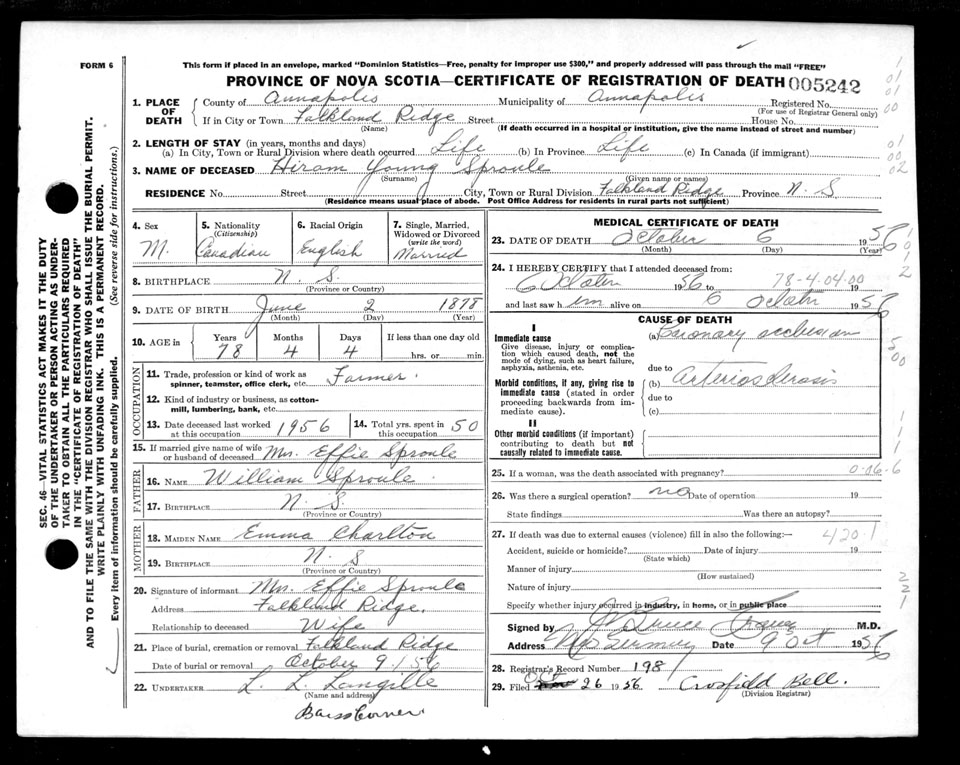 FORM 6
This form if placed in an envelope, marked "Dominion Statistics—Free, penalty for improper use $300," and properly addressed will pass through the mail "FREE"
PROVINCE OF NOVA SCOTIA—CERTIFICATE OF REGISTRATION OF DEATH 005242
SEC. 46—VITAL STATISTICS ACT MAKES IT THE DUTY
OF THE UNDERTAKER OR PERSON ACTING AS UNDER-
TAKER TO OBTAIN ALL THE PARTICULARS REQUIRED
IN THE "CERTIFICATE OF REGISTRATION OF DEATH"
AND TO FILE THE SAME WITH THE DIVISION REGISTRAR WHO SHALL ISSUE THE BURIAL PERMIT.
WRITE PLAINLY WITH UNFADING INK. THIS IS A PERMANENT RECORD.
Every item of information should be carefully supplied. (See reverse side for instructions.)
1. PLACE OF DEATH County of Annapolis Municipality of Annapolis Registered No.
(For use of Registrar General only)
If in City or Town Falkland Ridge Street House No.
(Name) (If death occurred in a hospital or institution, give the name instead of street and number)
2. LENGTH OF STAY (in years, months and days)
(a) In City, Town or Rural Division where death occurred Life (b) In Province Life (c) In Canada (if immigrant)
3. NAME OF DECEASED Hiram Young Sproule
(Surname) (Given name or names)
RESIDENCE No. Street City, Town or Rural Division Falkland Ridge Province N. S
(Residence means usual place of abode. Post Office Address for residents in rural parts not sufficient)
4. Sex M.
5. Nationality (Citizenship) Canadian
6. Racial Origin English
7. Single, Married, Widowed or Divorced (write the word) Married
8. BIRTHPLACE N. S.
(Province or Country)
9. DATE OF BIRTH June 2 1878
(Month) (Day) (Year)
10. AGE in Years Months Days If less than one day old
78 4 4 hrs. or min.
OCCUPATION
11. Trade, profession or kind of work as
spinner, teamster, office clerk, etc. Farmer.
12. Kind of industry or business, as cotton-
mill, lumbering, bank, etc.
13. Date deceased last worked at this occupation 1956 14. Total yrs. spent in this occupation 50
15. If married give name of wife or husband of deceased Mrs. Effie Sproule
FATHER
16. NAME William Sproule
17. BIRTHPLACE N. S
(Province or Country)
MOTHER
18. MAIDEN NAME Emma Charlton
19. BIRTHPLACE N. S
(Province or Country)
20. Signature of informant Mrs. Effie Sproule
Address Falkland Ridge.
Relationship to deceased Wife
21. Place of burial, cremation or removal Falkland Ridge
Date of burial or removal October 9/56
22. UNDERTAKER L. L. Langille
(Name and address)
Barss Corner.
MEDICAL CERTIFICATE OF DEATH
23. DATE OF DEATH October 6 1956
(Month) (Day) (Year)
24. I HEREBY CERTIFY that I attended deceased from:
6 October 1956 to 78-4-04-00 19
and last saw him alive on 6 October 1956
CAUSE OF DEATH
I
Immediate cause
Give disease, injury or complica-
tion which caused death, not the
mode of dying, such as heart failure,
asphyxia, asthenia, etc.
(a) Coronary occlusion
due to
Morbid conditions, if any, giving rise to
immediate cause (stated in order
proceeding backwards from im-
mediate cause).
(b) Arteriosclerosis
due to
(c)
II
Other morbid conditions (if important)
contributing to death but not
causally related to immediate cause.
25. If a woman, was the death associated with pregnancy? 0-06-6
26. Was there a surgical operation? no Date of operation 19
State findings Was there an autopsy?
27. If death was due to external causes (violence) fill in also the following:— 420.1
Accident, suicide or homicide? Date of injury 19
(State which)
Manner of injury
(How sustained)
Nature of injury
Specify whether injury occurred in industry, in home, or in public place
Signed by M.D.
Address Date 9 Oct 1956
28. Registrar's Record Number 198
29. Filed Oct 26 1956 Crosfield Bell.
(Division Registrar)